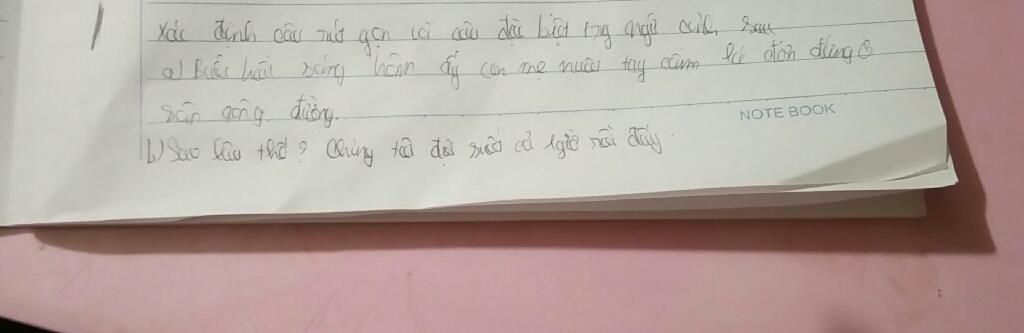 1 Xác định câu rút gọn và câu đặc biệt trong ngữ cảnh sau
a) hồi sáng hôm ấy con mẹ nuôi tay cầm đứng ở
sân công đường.
NOTE BOOK
b) Sao lâu thế? Chúng tớ đợi cả 1 giờ rồi đấy.